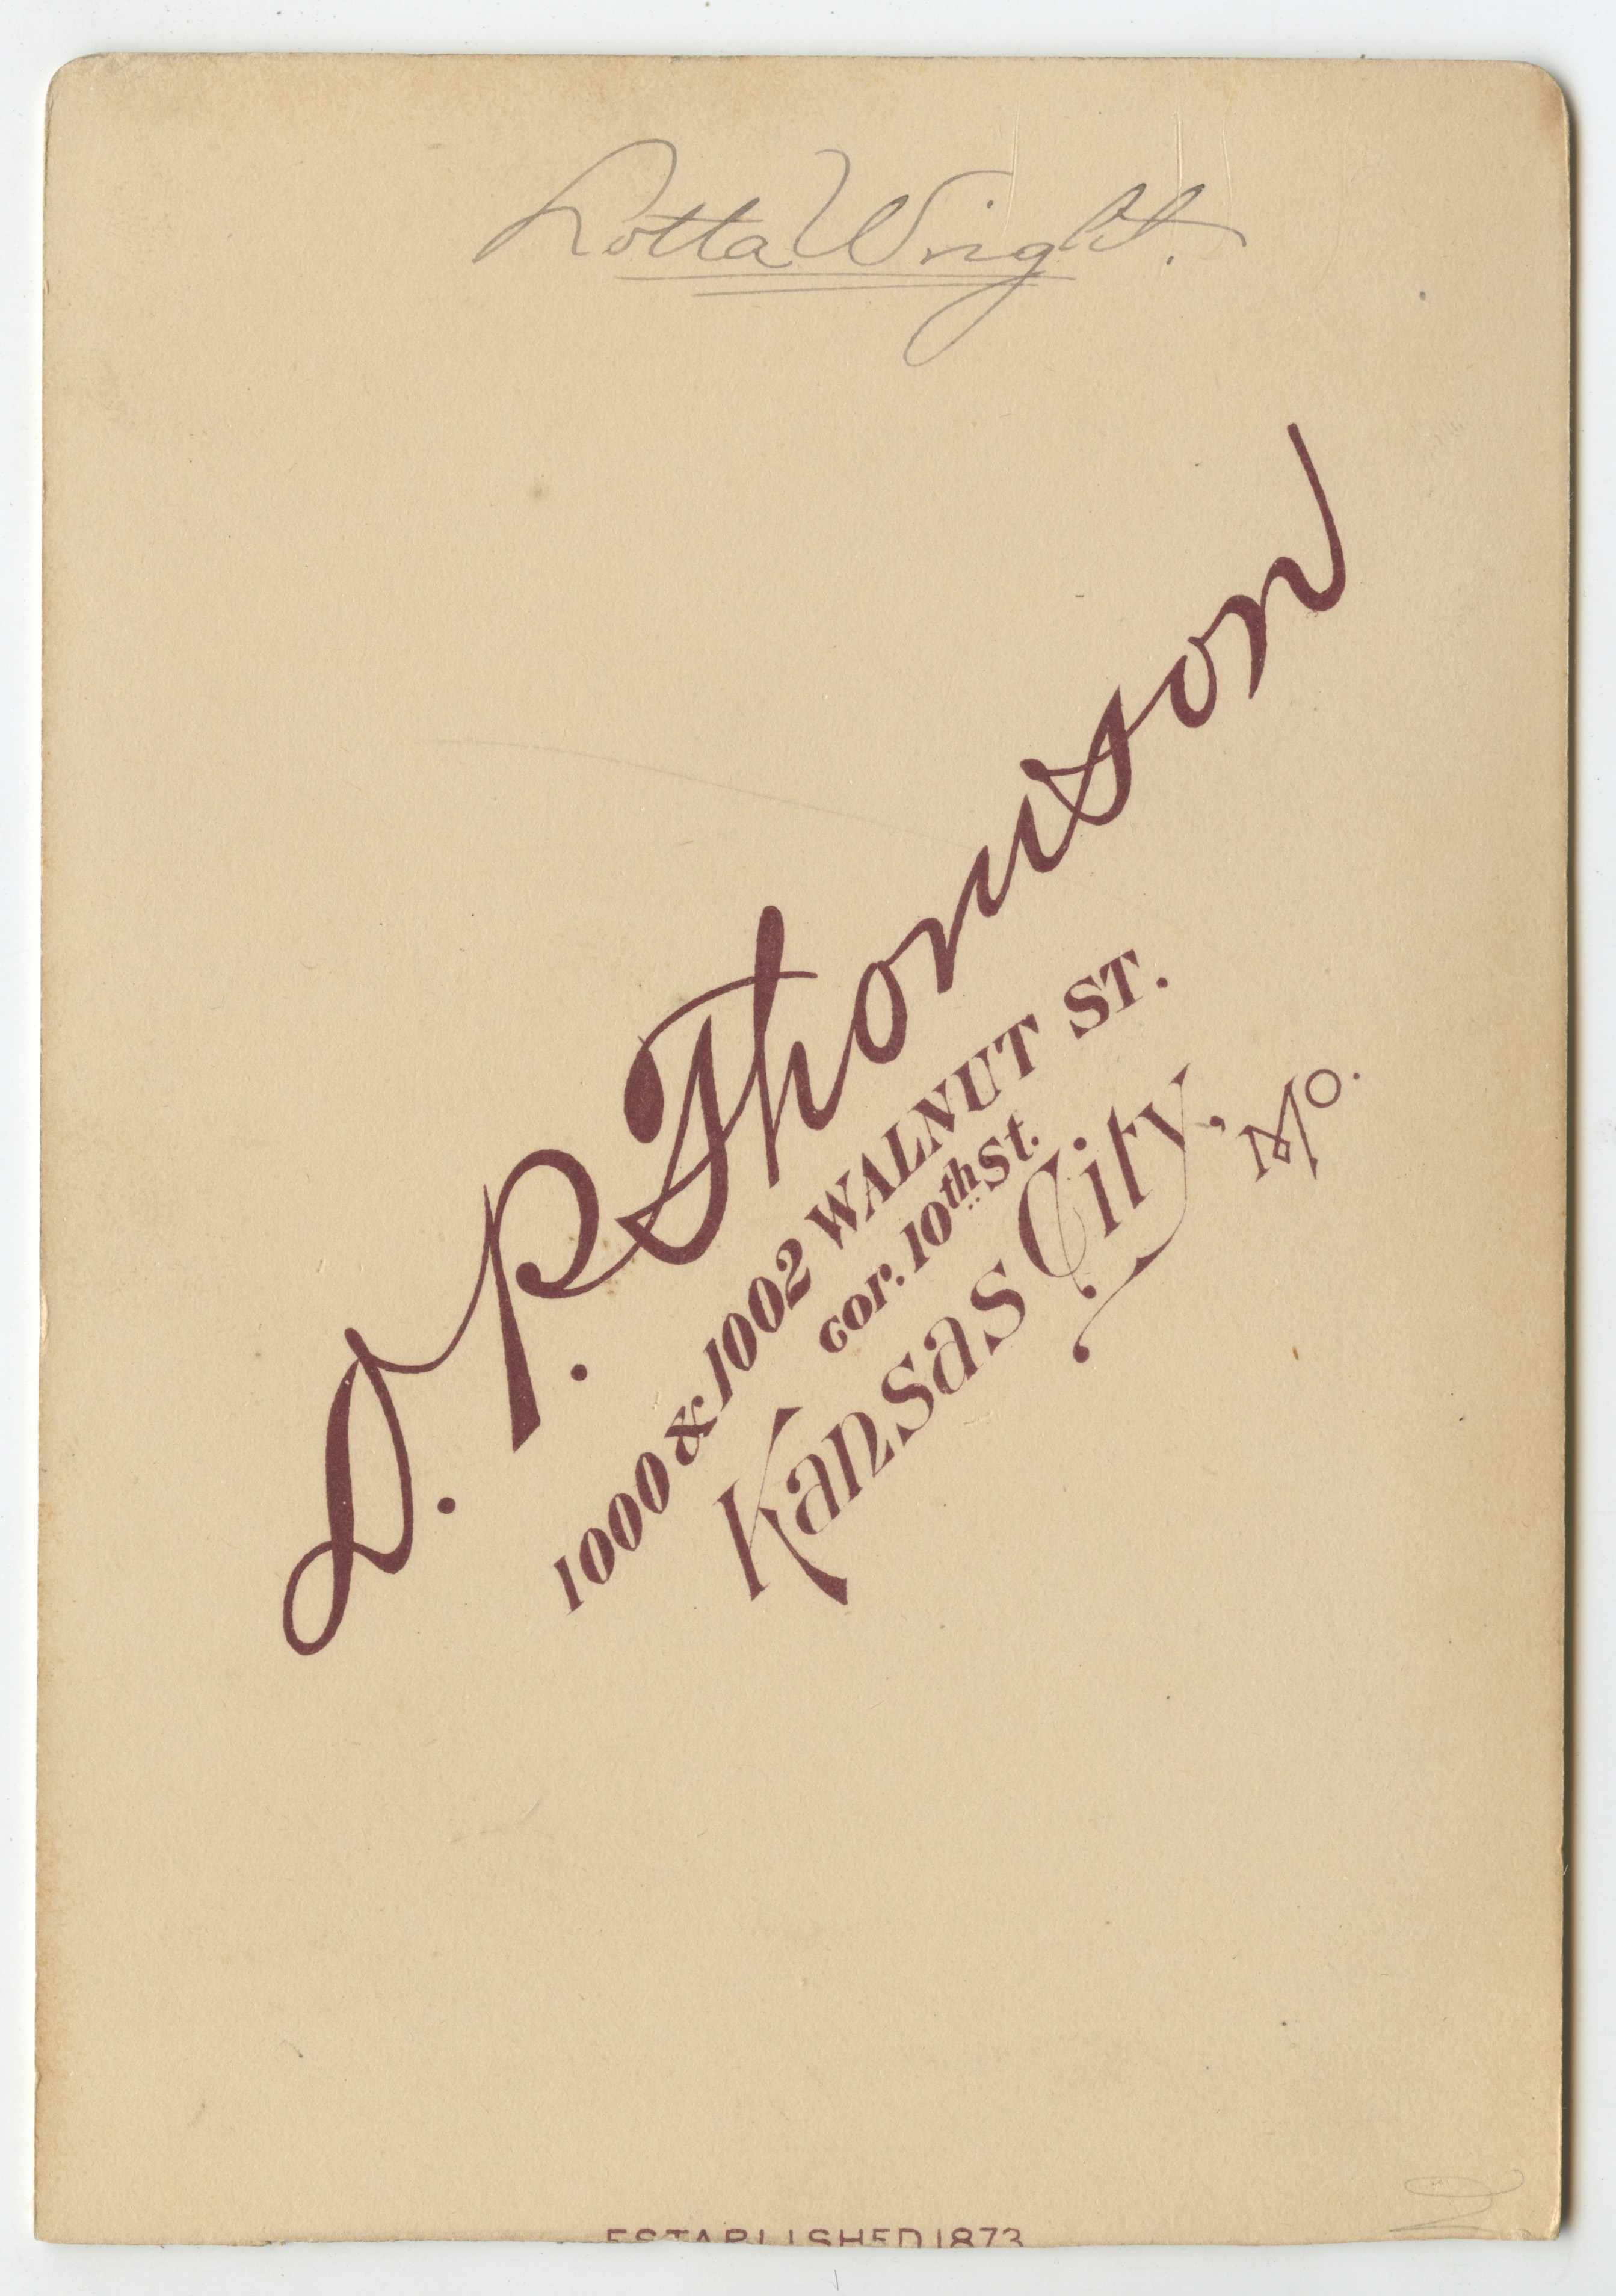 Lotta Wright.
D. P. Thomson
1000 & 1002 WALNUT ST.
cor. 10th St.
Kansas City, Mo.
ESTABLISHED 1873